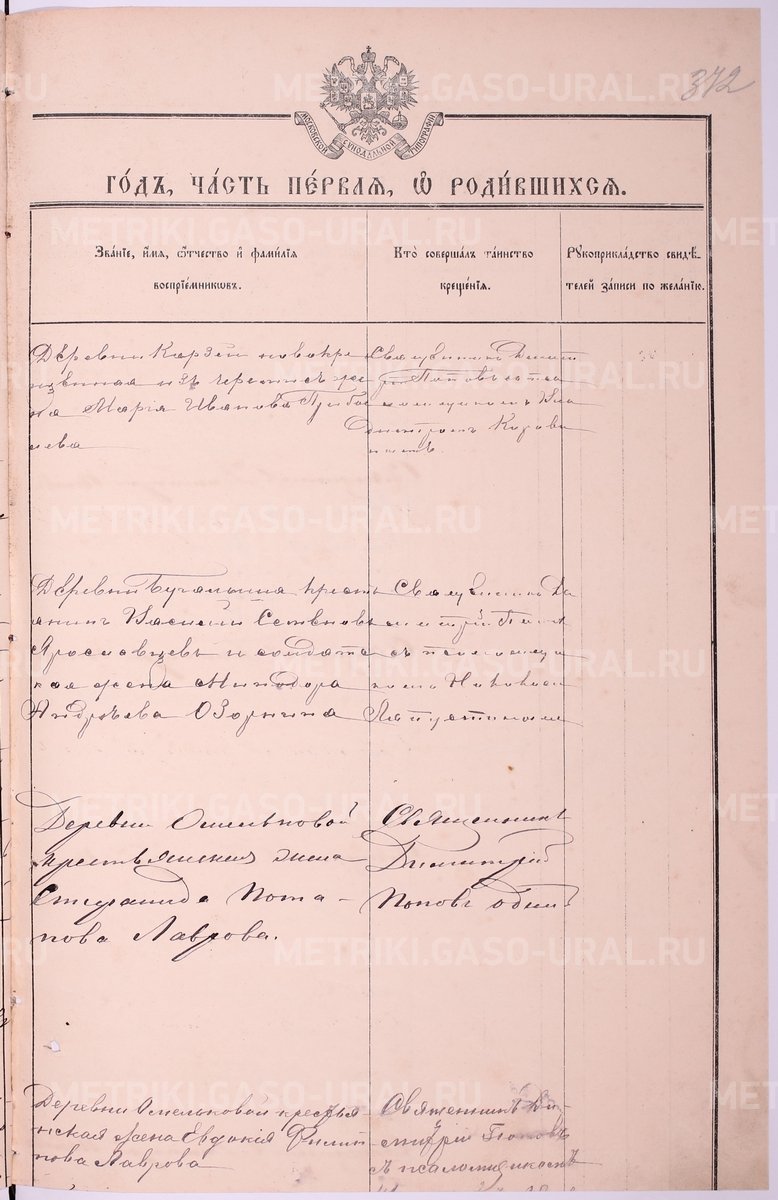 372
МОСКОВСКОЙ СѴНОДАЛЬНОЙ ТИПОГРАФІИ
ГО́ДЪ, ЧА́СТЬ ПЕ́РВАЯ, Ѽ РОДИ́ВШИХСЯ.
Зва́ніе, и́мя, ѻ́тчество и фами́лія
воспріе́мниковъ.
Кто̀ соверша́лъ та́инство
креще́нія.
Рꙋкоприкла́дство свидѣ́-
телей за́писи по жела́нію.
Деревни новокре
изъ черемисъ
Марія Иванова
Священникъ Димит
рій Поповъ съ пса
ломщикомъ Вла
диміромъ
Деревни кресть
янинъ Василій
Ярославцевъ и солдатс
кая жена Минодора
Андреева Озорнина
Священникъ Ди
митрій Попов
съ псаломщи
комъ Николаем
Лапустинымъ
Деревни Омельковой
крестьянская жена
Стефанида Пота-
пова Лаврова.
Священникъ
Димитрій
Поповъ одинъ
Деревни Омельковой крестья
нская жена Евдокія Филип
пова Лаврова
Священникъ Ди-
митрій Поповъ
съ псаломщикомъ
METRIKI.GASO-URAL.RU